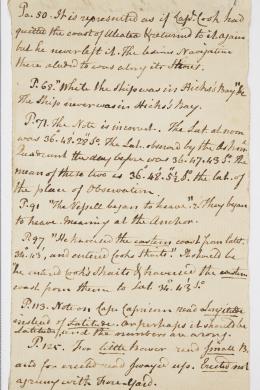 Pa. 80. It is represented as if Capt. Cook had
quitted the coast of Ulietea & returned to it again
but he never left it. The
there alluded to was along its Shores.
P. 68. "While the Ship was in Hicks's Bay" &c
The Ship never was in Hicks's Bay.
P. 71. The Note is incorrect. The Lat. at noon
was 36.48.28 S. The Lat. observed by the Astron.
Quadrant the day before was 36.47.43 S. The
mean of these two is 36.48.5½ S. the lat. of
the place of Observation.
P. 91 "The Vessel began to leave". They began
to heave. meaning at the Anchor.
P. 97 "He traversed the eastern coast from Latit.
34.43, and entered Cook's Straits". It should be
he entered Cook's Straits & traversed the eastern
coast from them to Lat 34.43 S.
P. 113. Note on Cap Capricorn read Longitude
instead of Latitude. or perhaps it should be
Latitude, and the numbers are wrong.
P. 125. For little Bower read Small B.
and for erected read swayed up. Erected not
agreeing with there